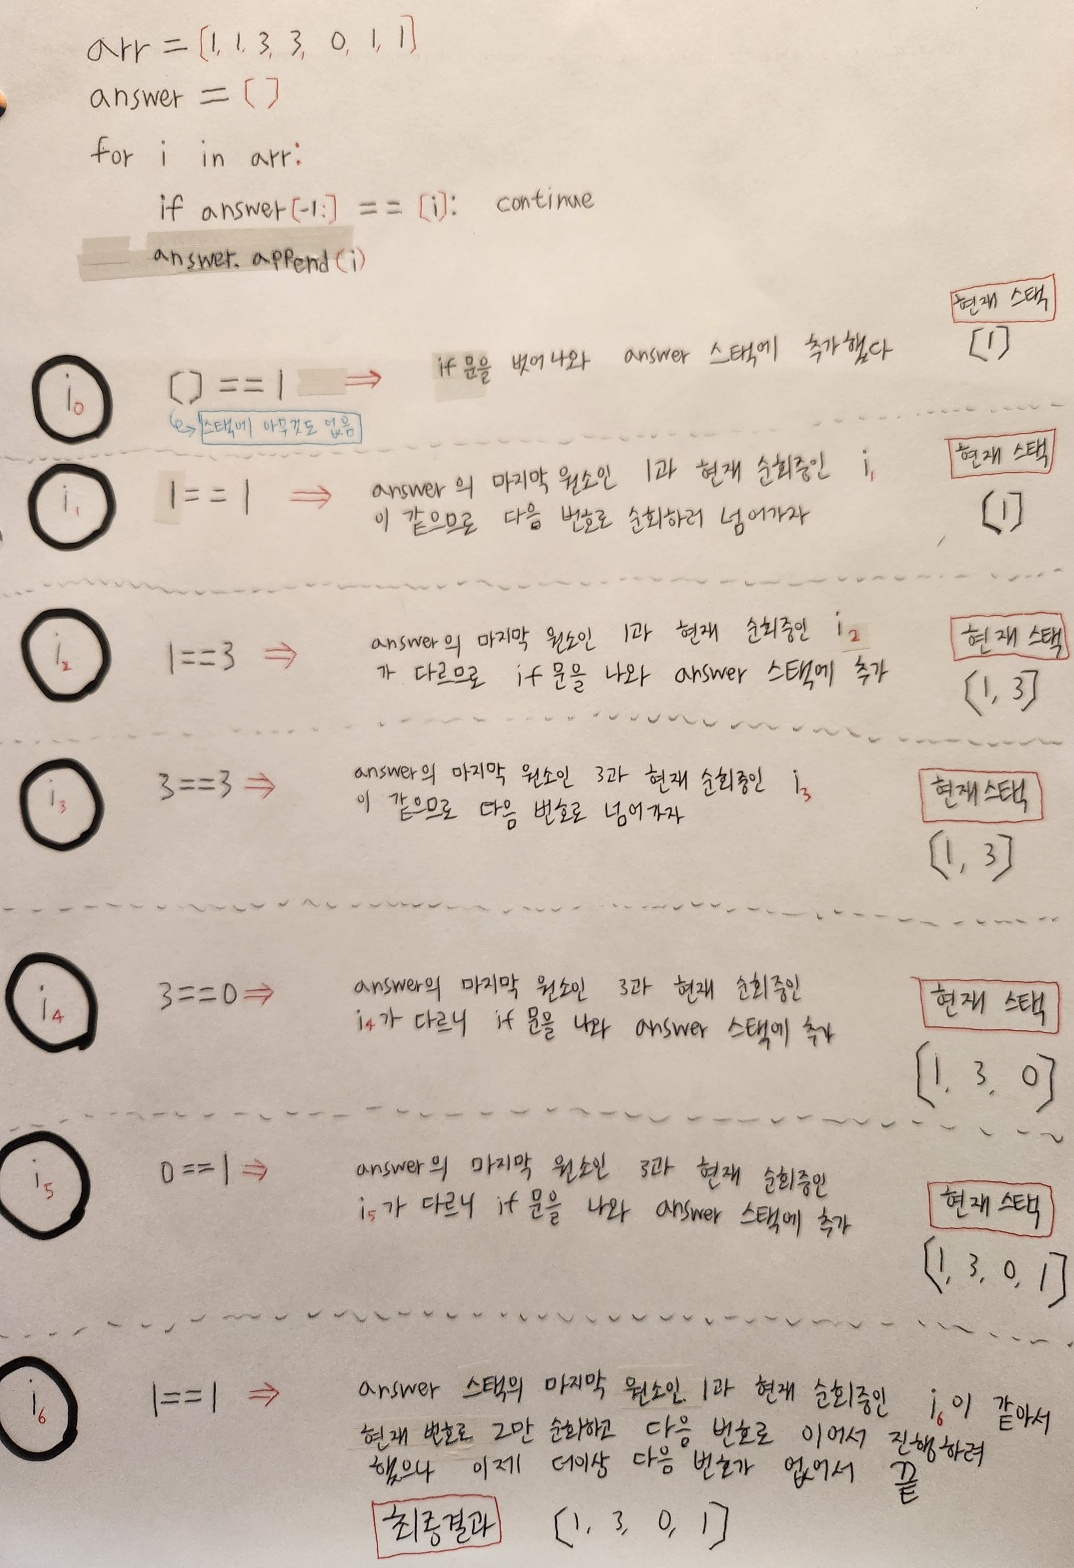 arr = [1, 1, 3, 3, 0, 1, 1]
answer = []
for i in arr:
if answer[-1:] == [i]: continue
answer.append(i)
현재 스택
i0 [] == 1 ⇒ if 문을 벗어나와 answer 스택에 추가했다 [1]
↳ 스택에 아무것도 없음
현재 스택
i1 1 == 1 ⇒ answer의 마지막 원소인 1과 현재 순회중인 i1
이 같으므로 다음 번호로 순회하러 넘어가자 [1]
현재 스택
i2 1==3 ⇒ answer의 마지막 원소인 1과 현재 순회중인 i2
가 다르므로 if 문을 나와 answer 스택에 추가 [1, 3]
현재 스택
i3 3==3 ⇒ answer의 마지막 원소인 3과 현재 순회중인 i3
이 같으므로 다음 번호로 넘어가자 [1, 3]
현재 스택
i4 3==0 ⇒ answer의 마지막 원소인 3과 현재 순회중인
i4가 다르니 if 문을 나와 answer 스택에 추가 [1, 3, 0]
i5 0==1 ⇒ answer의 마지막 원소인 3과 현재 순회중인
i5가 다르니 if 문을 나와 answer 스택에 추가
현재 스택
[1, 3, 0, 1]
i6 1==1 ⇒ answer 스택의 마지막 원소인 1과 현재 순회중인 i6이 같아서
현재 번호로 2만 순회하고 다음 번호로 이어서 진행하려
했으나 이제 더이상 다음 번호가 없어서 끝
최종결과 [1, 3, 0, 1]